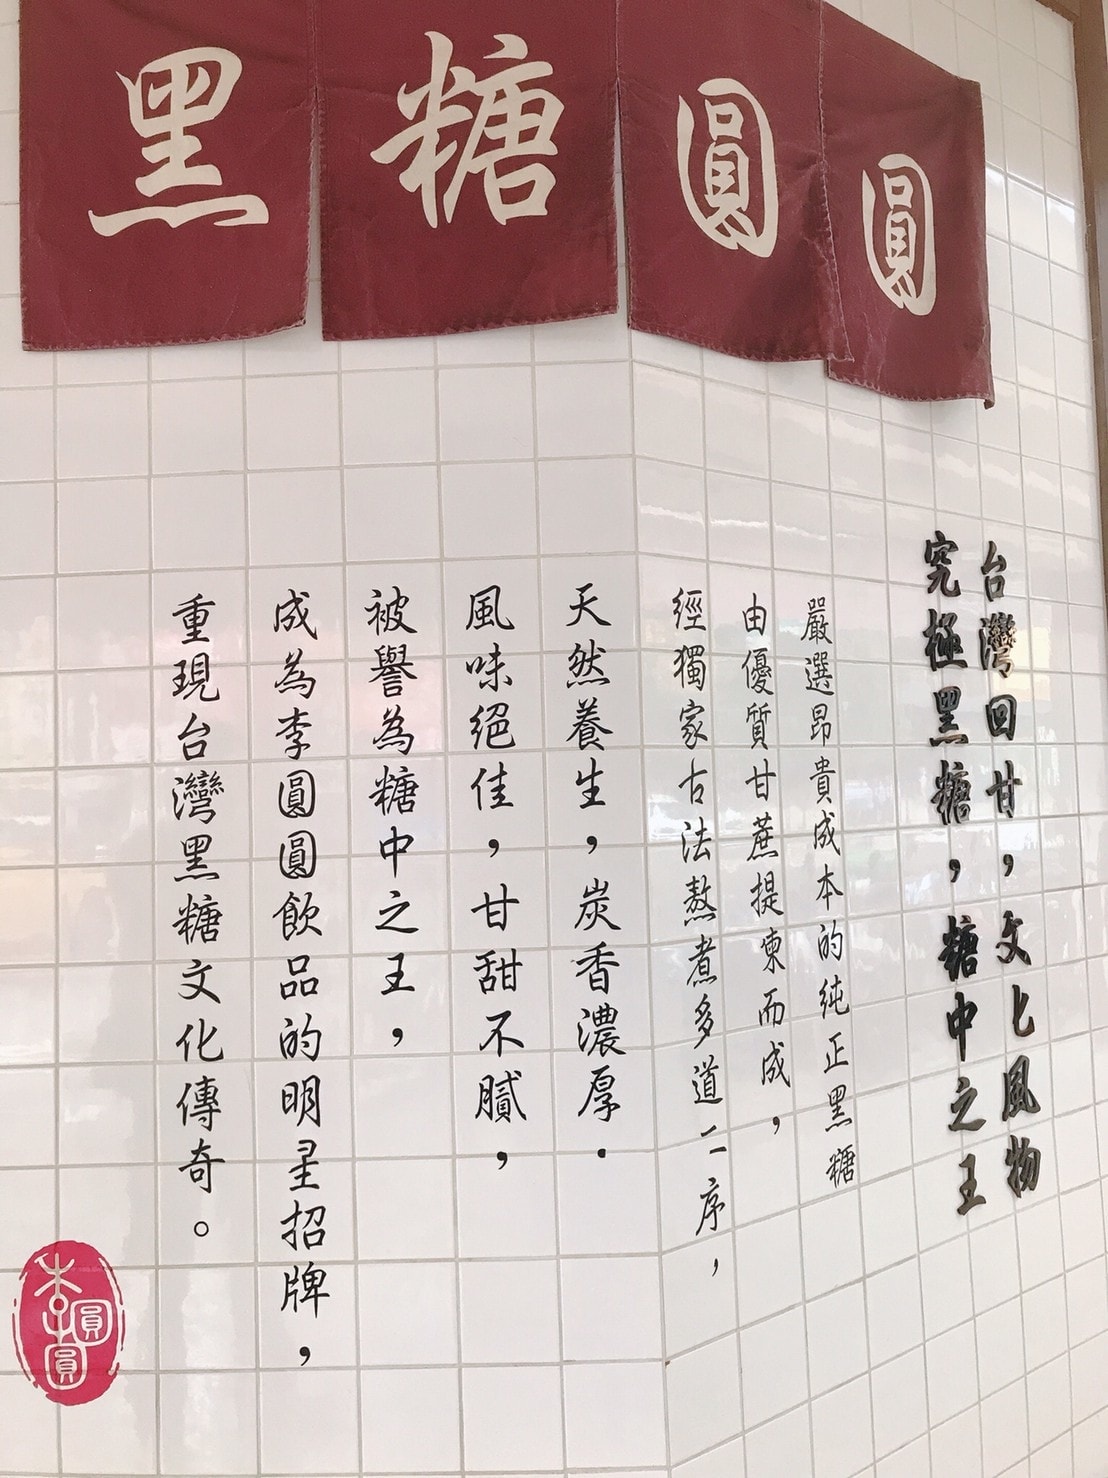 黑糖圓圓
台灣回甘，文匕風物
究極黑糖，糖中之王
嚴選昂貴成本的純正黑糖
由優質甘蔗提柬而成，
經獨家古法熬煮多道二序，
天然養生，炭香濃厚．
風味絕佳，甘甜不膩，
被譽為糖中之王，
成為李圓圓飲品的明星招牌，
重現台灣黑糖文化傳奇。
李圓圓